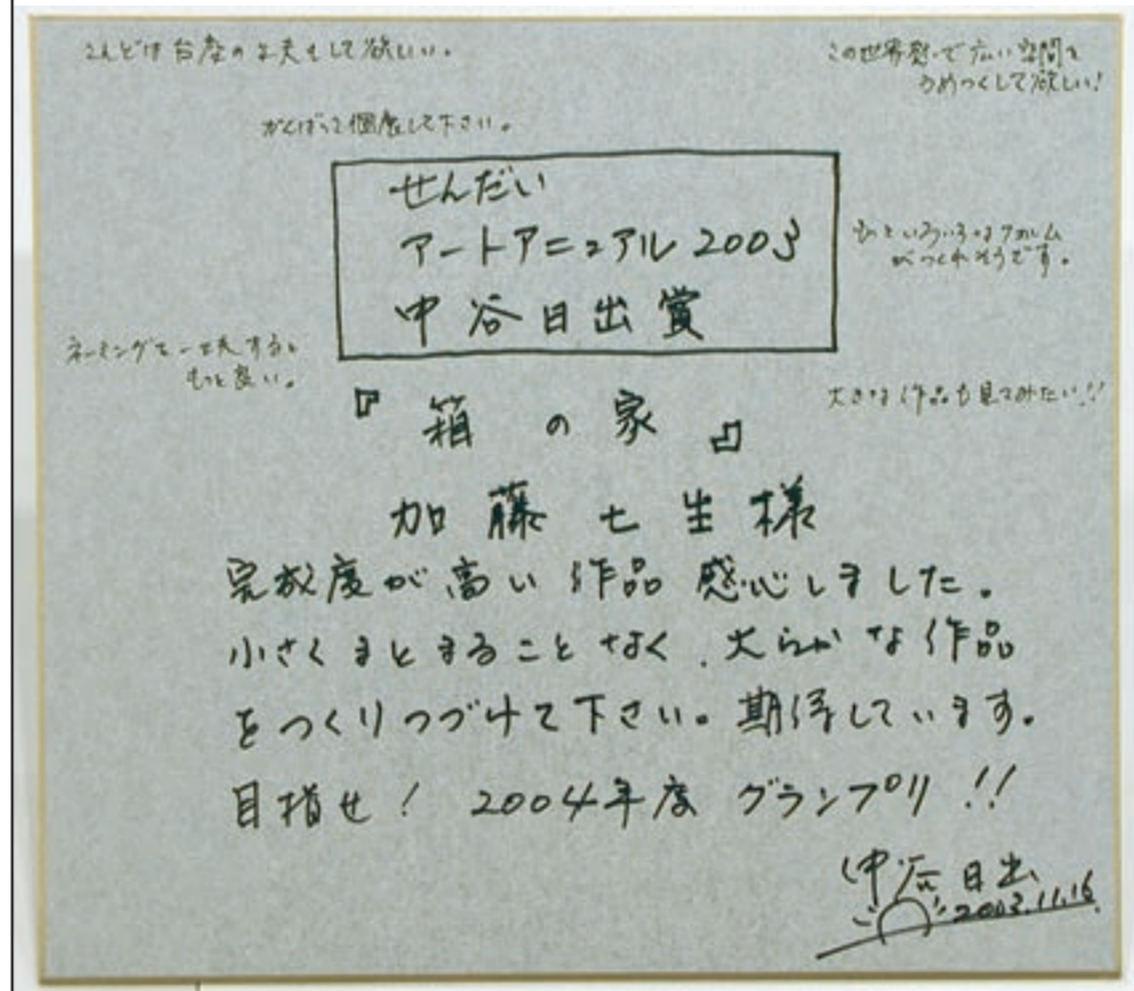 こんどは台座の工夫もして欲しい。
この世界観で広い空間を
うめつくして欲しい!
がんばって個展して下さい。
せんだい
アートアニュアル2003
中谷日出賞
もっといろいろなフォルム
がつくれそうです。
ネーミングを一工夫すると
もっと良い。
大きな作品も見てみたい!!
『箱の家』
加藤七生様
完成度が高い作品 感心しました。
小さくまとまることなく、大らかな作品
をつくりつづけて下さい。期待しています。
目指せ! 2004年度 グランプリ!!
中谷日出
2003.11.16